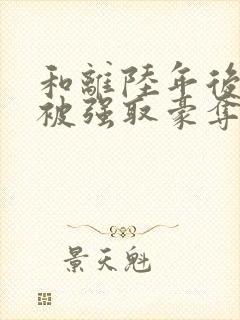 和離陸年後
被强取豪奪
景天魁